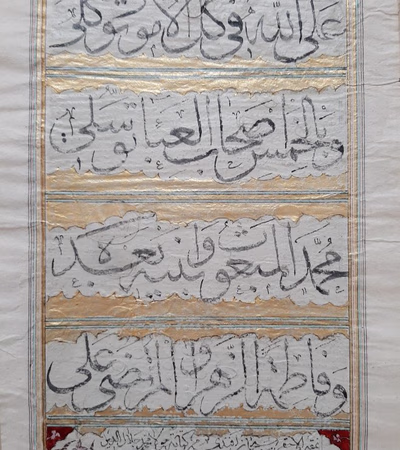 على الله في كل الامور توكلي
وبالخمس اصحاب العبا توسلي
محمد المبعوث وابنيه بعده
وفاطمة الزهرا والمرتضى علي